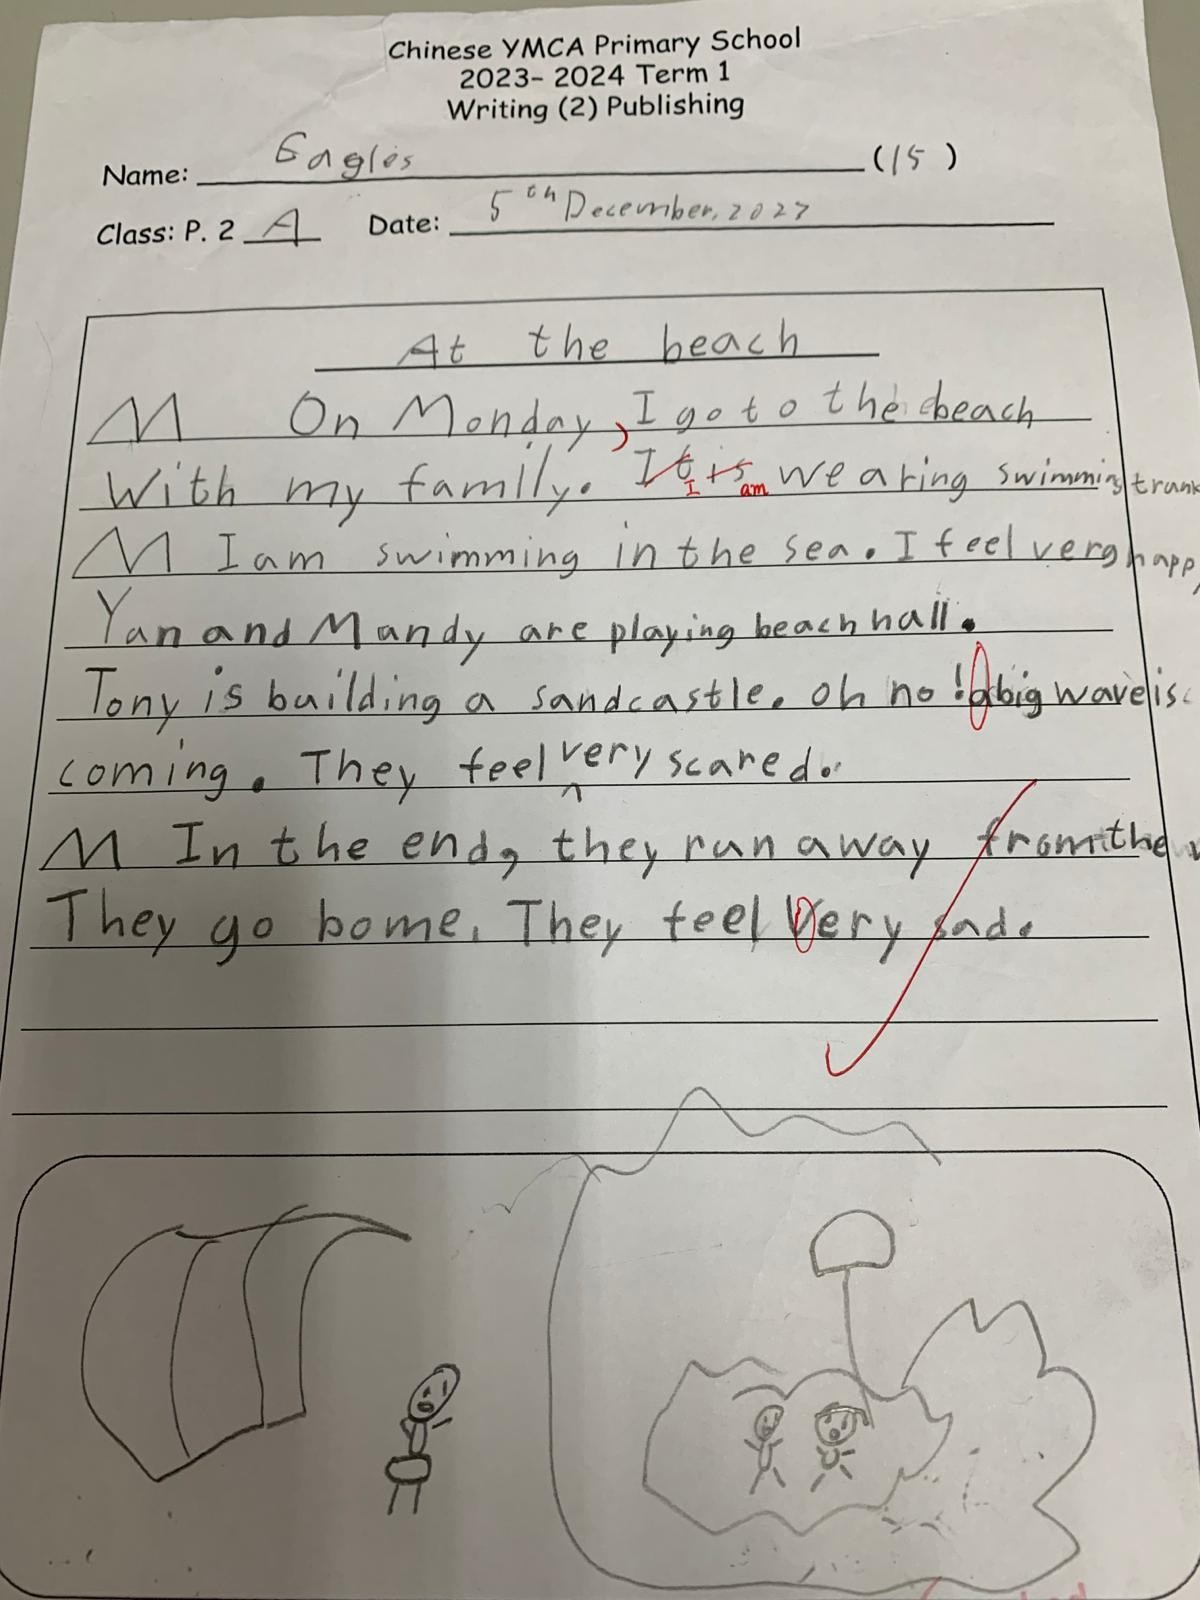 Chinese YMCA Primary School
2023- 2024 Term 1
Writing (2) Publishing
Name: Eagles (15)
Class: P. 2 A Date: 5th December, 2027
At the beach
M On Monday, I go to the beach
With my family. It is I am wearing swimming trunk
M I am swimming in the sea. I feel very happ
Yan and Mandy are playing beach hall.
Tony is building a sandcastle. oh no! a big wave is
coming. They feel very scared.
M In the end, they run away from the
They go bome. They feel Very sad.